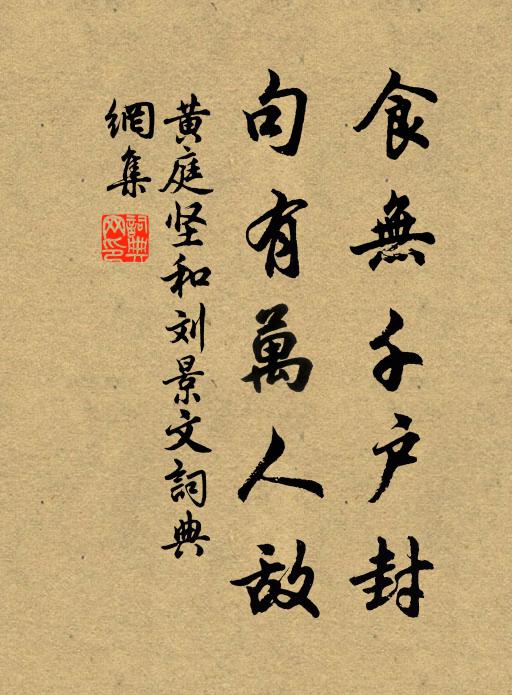 食無千户封
句有萬人敌
黄庭坚和刘景文詞典
網集
詞典
网印